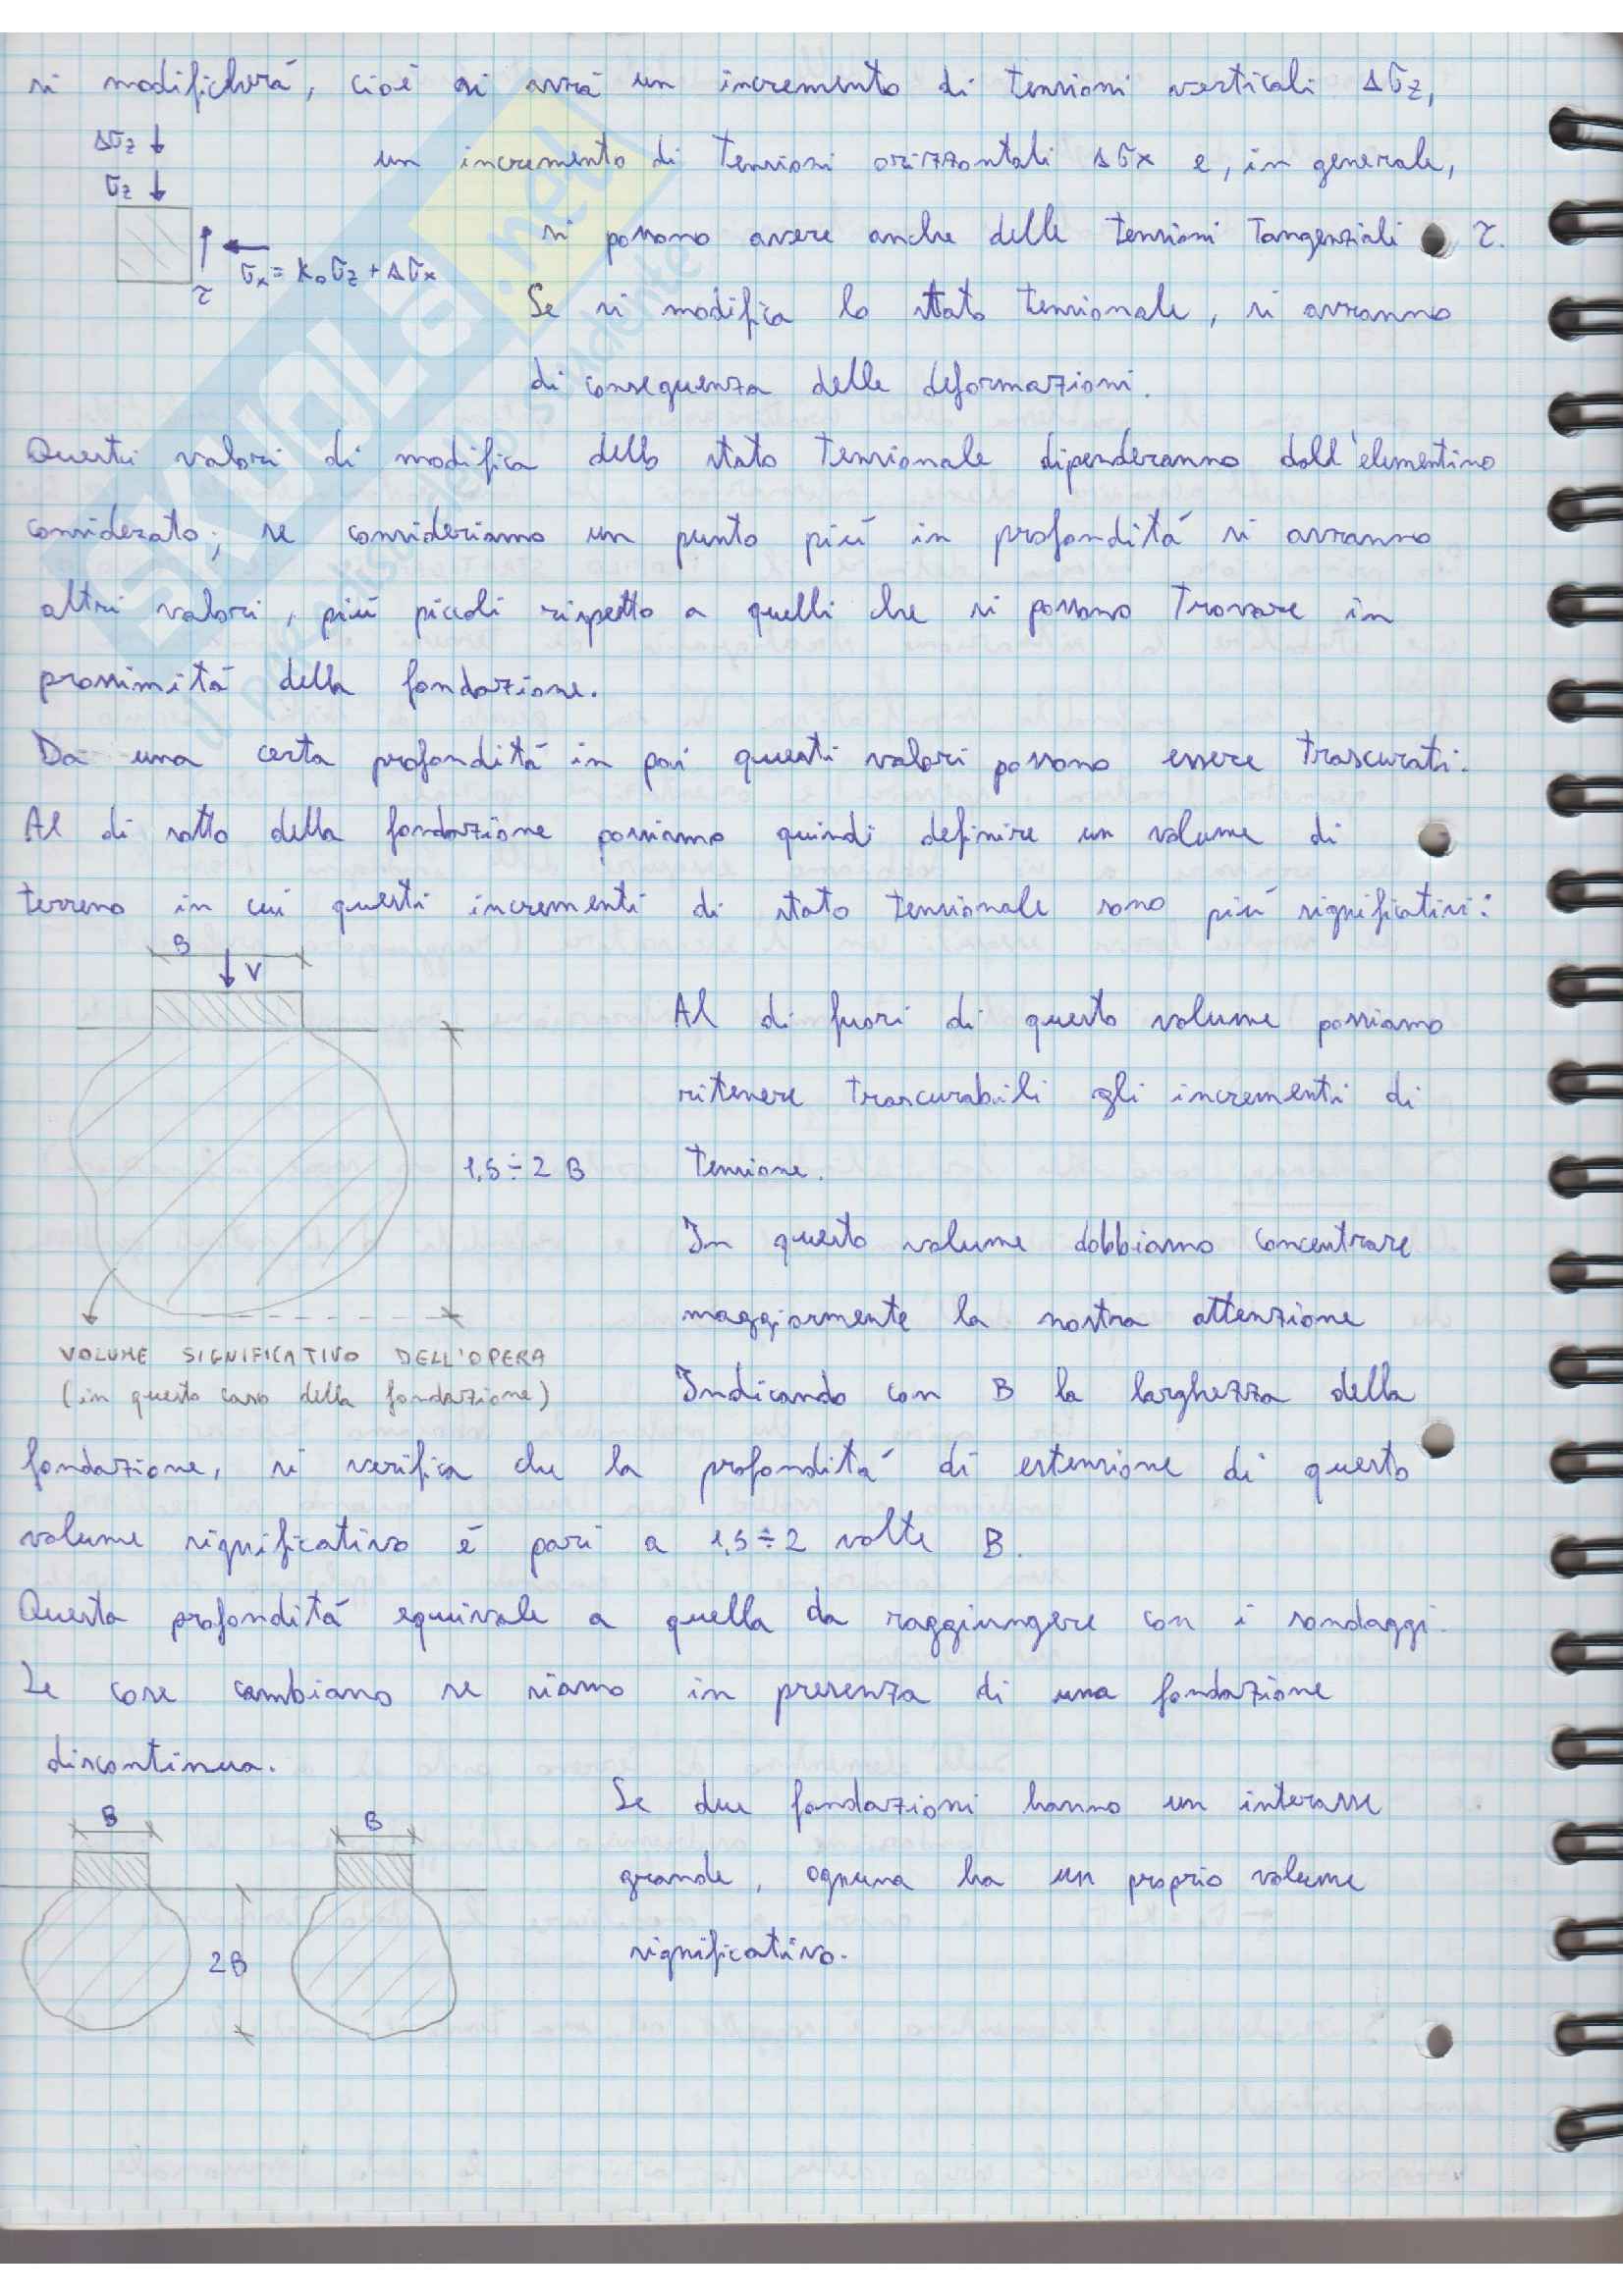 si modificherà, cioè si avrà un incremento di tensioni verticali Δσz,
Δσz
un incremento di tensioni orizzontali Δσx e, in generale,
σz
si possono avere anche delle tensioni tangenziali τ.
σx = k₀σz + Δσx
τ
Se si modifica lo stato tensionale, si avranno
di conseguenza delle deformazioni.
Questi valori di modifica dello stato tensionale dipenderanno dall'elementino
considerato; se consideriamo un punto più in profondità si avranno
altri valori, più piccoli rispetto a quelli che si possono trovare in
prossimità della fondazione.
Da una certa profondità in poi questi valori possono essere trascurati.
Al di sotto della fondazione possiamo quindi definire un volume di
terreno in cui questi incrementi di stato tensionale sono più significativi:
B
V
Al di fuori di questo volume possiamo
ritenere trascurabili gli incrementi di
1,5÷2 B
tensione.
In questo volume dobbiamo concentrare
maggiormente la nostra attenzione
VOLUME SIGNIFICATIVO DELL'OPERA
(in questo caso della fondazione)
Indicando con B la larghezza della
fondazione, si verifica che la profondità di estensione di questo
volume significativo è pari a 1,5÷2 volte B.
Questa profondità equivale a quella da raggiungere con i sondaggi.
Le cose cambiano se siamo in presenza di una fondazione
discontinua.
Se due fondazioni hanno un interasse
B
B
grande, ognuna ha un proprio volume
2B
significativo.
SKUOLA.net